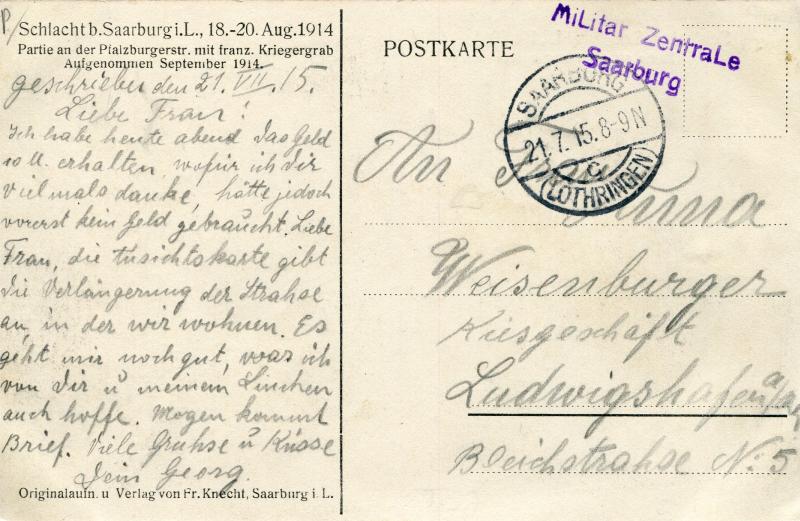 P/
Schlacht b. Saarburg i. L., 18.-20. Aug. 1914
Partie an der Pfalzburgerstr. mit franz. Kriegergrab
Aufgenommen September 1914.
geschrieben den 21. VII. 15.
Liebe Frau!
Ich habe heute abend das Geld
10 M. erhalten, wofür ich dir
vielmals danke, hätte jedoch
vorerst kein Geld gebraucht. Liebe
Frau, die Ansichtskarte gibt
die Verlängerung der Strahse
an, in der wir wohnen. Es
geht mir noch gut, was ich
von dir u meinem Linchen
auch hoffe. Morgen kommt
Brief. Viele Gruhse u Küsse
Dein Georg.
Originalaufn. u Verlag von Fr. Knecht, Saarburg i. L.
POSTKARTE
Militar Zentrale
Saarburg
SAARBURG
21.7.15.8-9N
c
(LOTHRINGEN)
An Frau
Anna
Weisenburger
Kiesgeschäft
Ludwigshafen a/Rh
Bleichstrahse No. 5